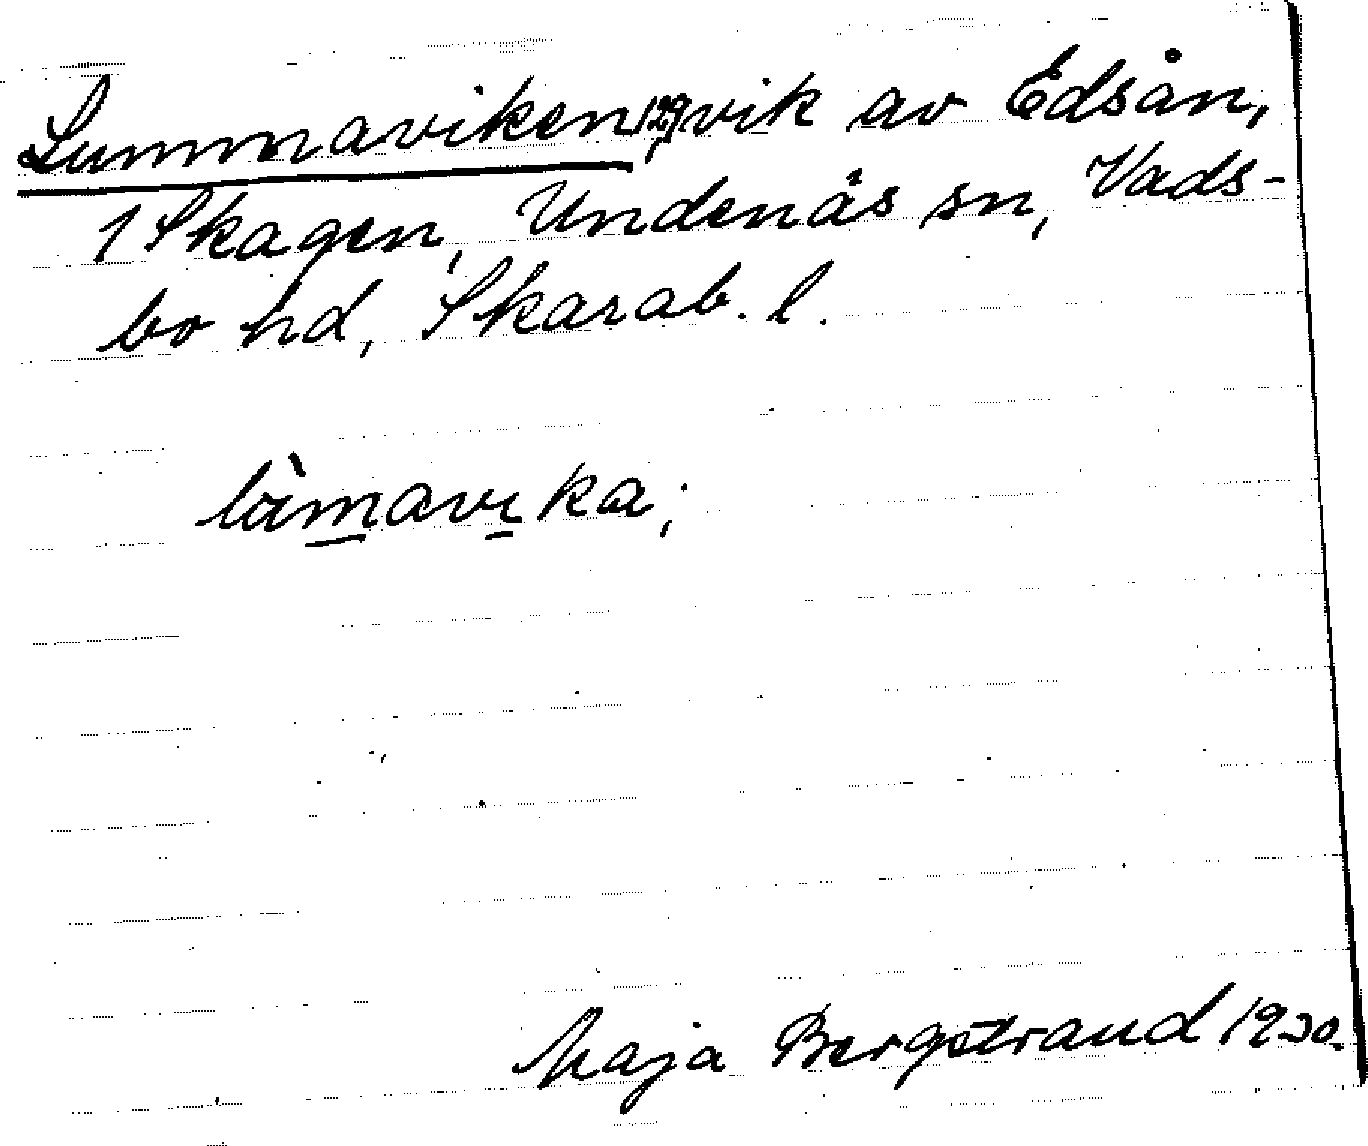 Lummaviken, 129, vik av Edsån,
1 Skagen, Undenäs sn, Vads-
bo hd, Skarab. l.
Maja Bergstrand 1930.